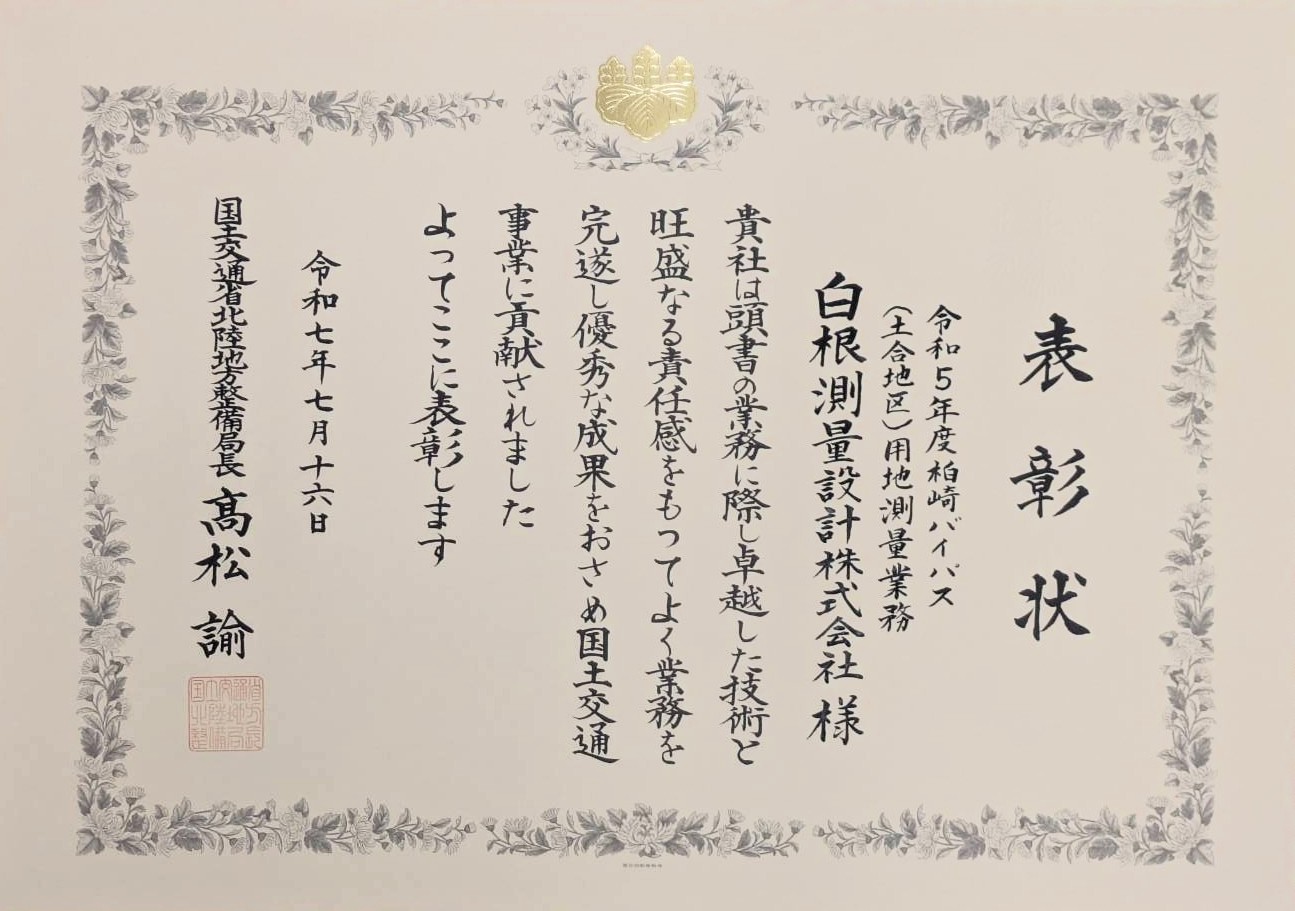 表彰状
令和５年度柏崎バイパス
（土合地区）用地測量業務
白根測量設計株式会社 様
貴社は頭書の業務に際し卓越した技術と
旺盛なる責任感をもつてよく業務を
完遂し優秀な成果をおさめ国土交通
事業に貢献されました
よってここに表彰します
令和七年七月十六日
国土交通省北陸地方整備局長 髙松 諭